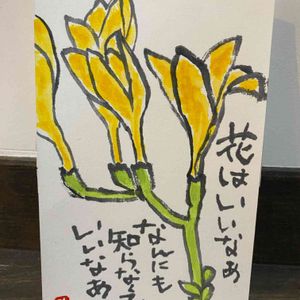 花はいいなあ
なんにも
知らな
いいなあ